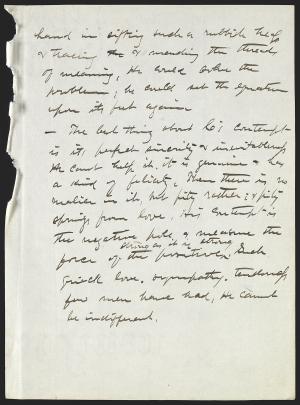 hand in sifting such a rubbish heap
& tracing & mending the threads
of meaning, He could solve the
problem; he could set the equation
upon its feet again
— The best thing about C's contempt
is its perfect sincerity & inevitableness
He cannot help it. It is genuine & has
a kind of felicity. Then there is no
malice in it, but pity rather; & pity
springs from love. His contempt is
the negative pole, & measures the
force of the positive. Such
strong as it is
quick love, sympathy, tenderness
few men have had. He cannot
be indifferent.